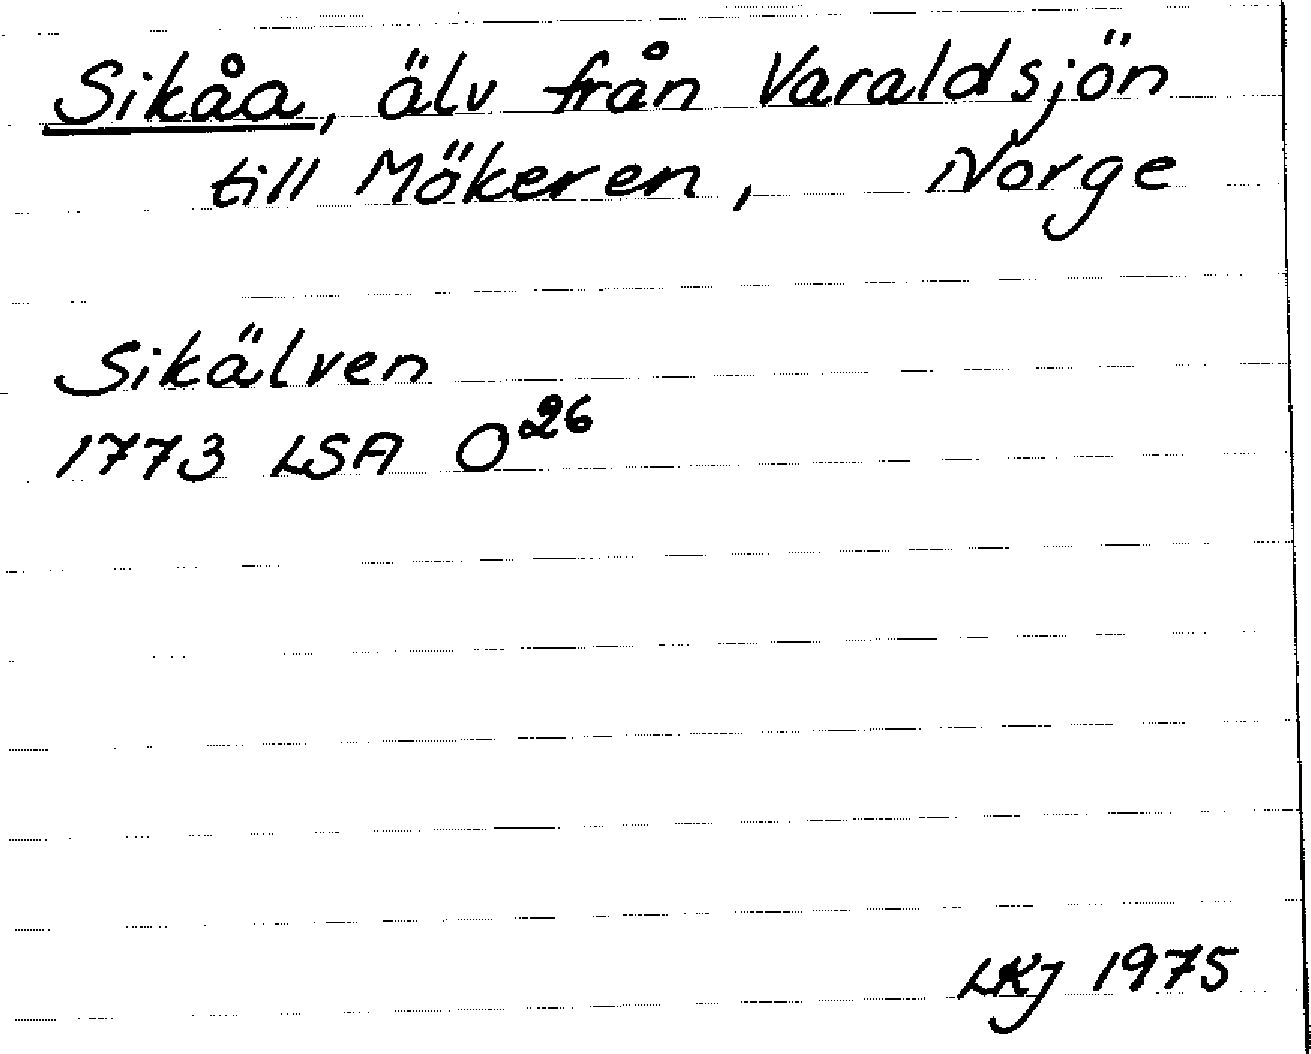 Sikåa, älv från Varaldsjön
till Mökeren, Norge
Sikälven
1773 LSA O26
LKJ 1975